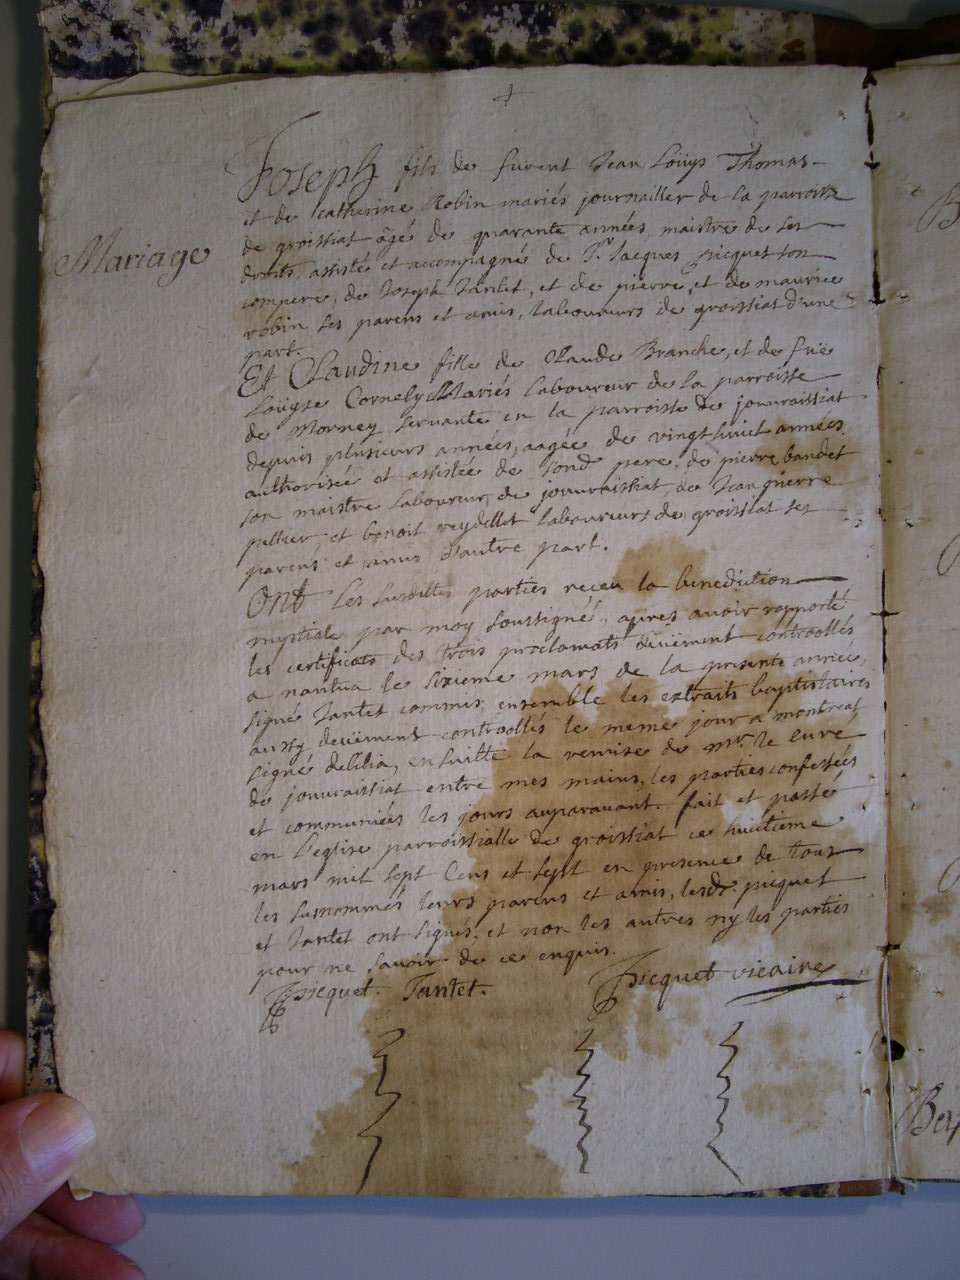 Mariage
Joseph fils de furent Jean Loüys Thomas
et de Catherine Robin mariés journailler de la parroisse
de groissiat âgé de quarante années maistre de ses
droits assisté et accompagné de Sr. Jacques picquet son
compere, de Joseph Tantet, et de pierre, et de maurice
robin ses parens et amis, laboureurs de groissiat d'une
part.
Et Claudine fille de Claude Branche, et de
Loüyse Cornely Mariés laboureur de la parroisse
de Morney servante en la parroisse de jouvraissiat
depuis plusieurs années, aagée de vingt huict années
authorisée et assistée de sond pere, de pierre bandet
son maistre laboureur de jouvraissiat, de Jean guerre
pellier et benoit reydellet laboureurs de groissiat ses
parens et amis d'autre part.
Ont les susdittes parties receu la benediction
mystiale par moy soussigné, apres avoir rapporté
les certificats des trois proclamats deüement controollés
a nantua le sixieme mars de la presente année,
signé Tantet commis, ensemble les extraits baptistaires
aussy deüement controollés le meme jour a montreal
signé delilia, ensuitte la remise de Mr. le curé
de jouvraissiat entre mes mains, les parties confessées
et communiées les jours auparavant. fait et passé
en l'eglise parroissialle de groissiat ce huictieme
mars mil sept Cens et sept en presence de tous
les susnommés leurs parens et amis, lesd. picquet
et Tantet ont signés, et non les autres ny les parties
pour ne savoir de ce enquis.
Picquet. Tantet. Picquet vicaire